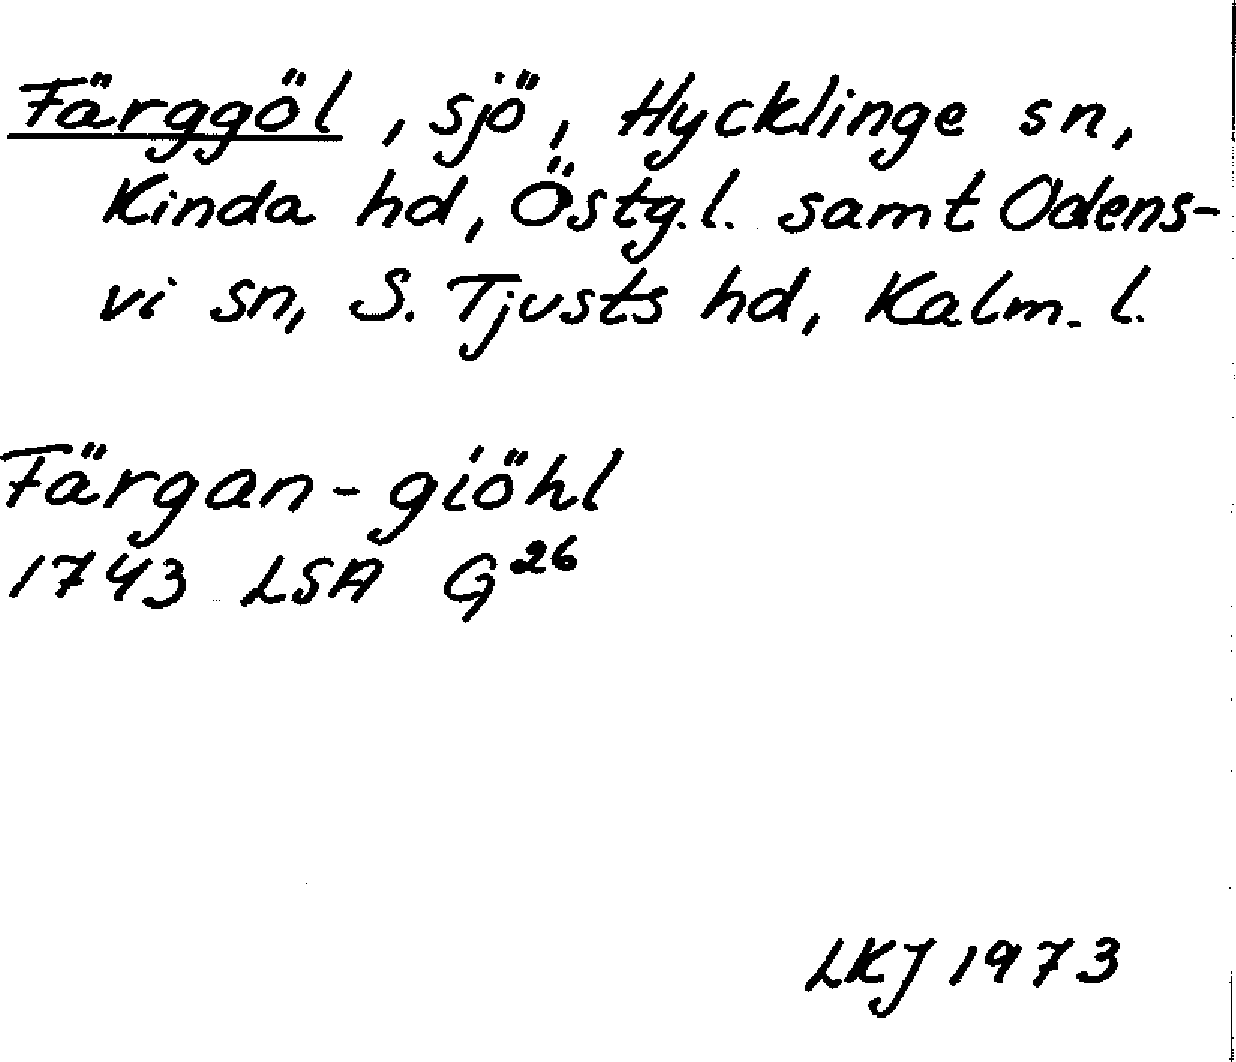 Färggöl, sjö, Hycklinge sn,
Kinda hd, Östg.l. samt Odens-
vi sn, S. Tjusts hd, Kalm. l.
Färgan-giöhl
1743 LSA G²⁶
LKJ 1973